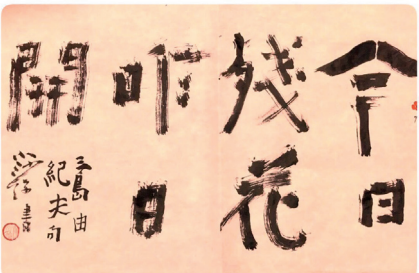 今日
残花
昨日
開
三島由
紀夫句
書